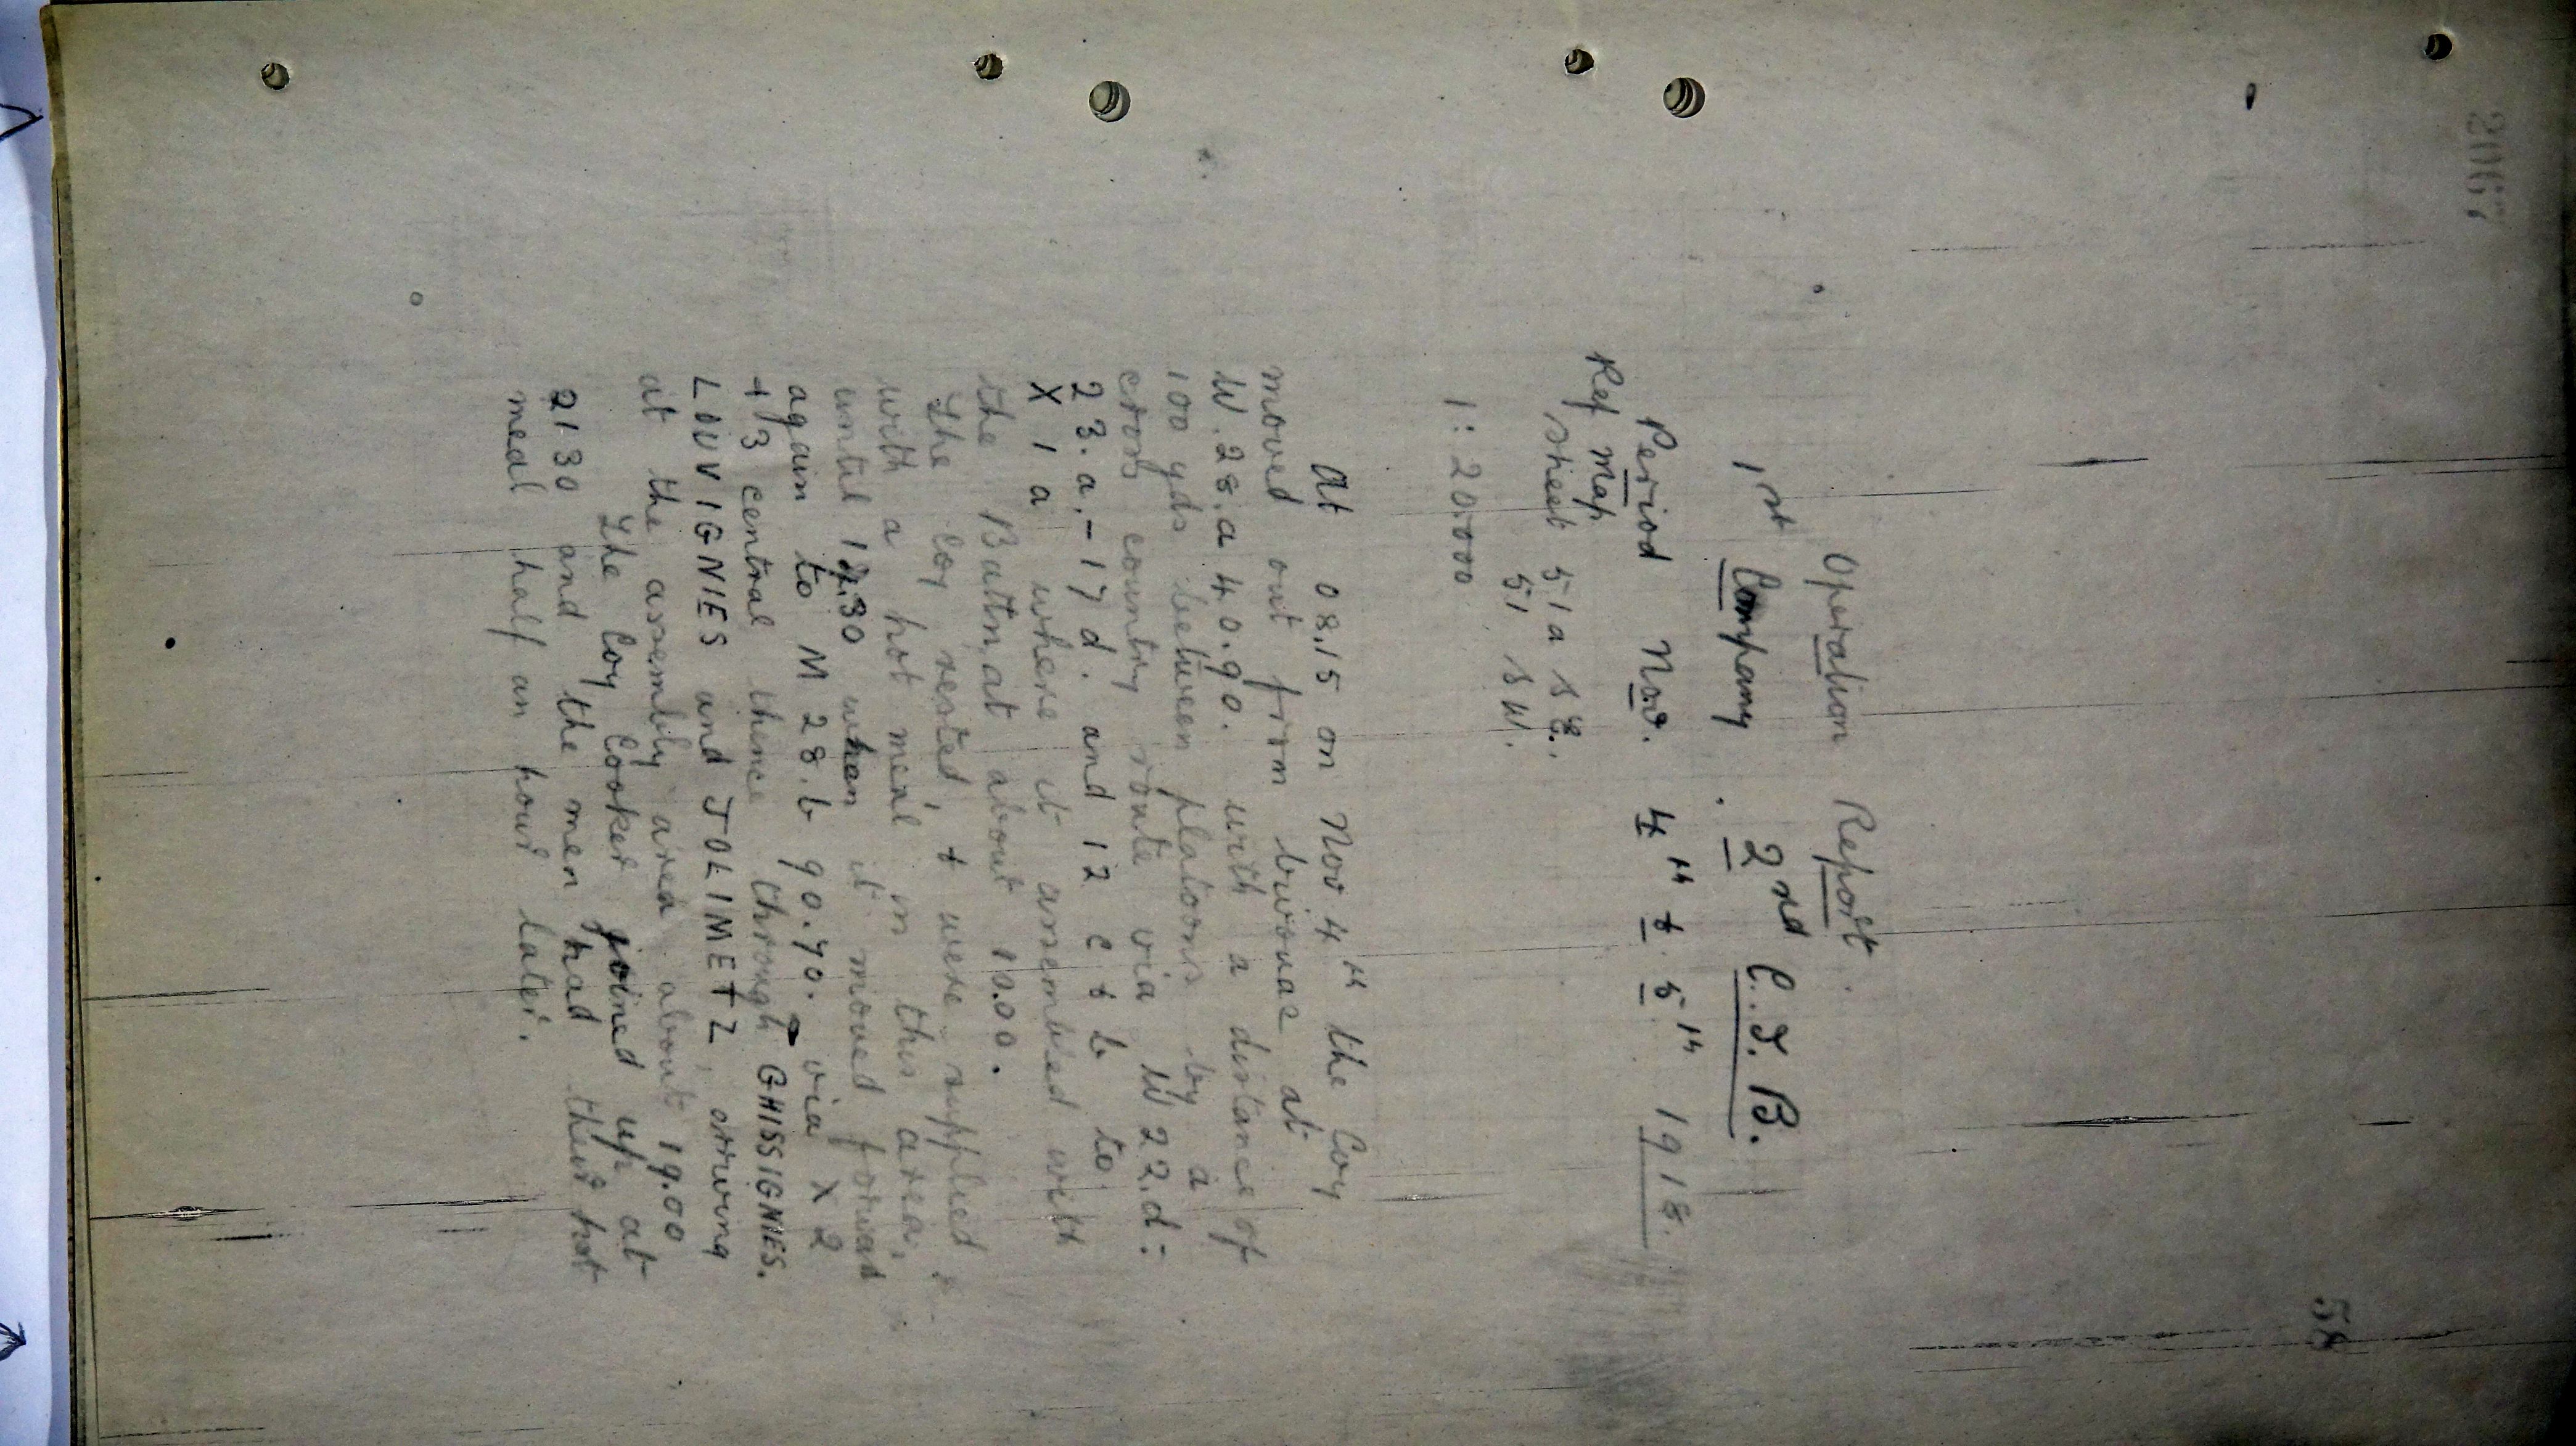 58
Operation Report.
1st Company. 2nd C.G.B.
Period Nov. 4th & 5th 1918.
Ref Map
Sheet 51a S.E.
51 S W.
1: 20.000
At 08.15 on Nov 4th the Coy
moved out from bivouac at
W.28.a 40.90. with a distance of
100 yds between platoons by a
cross country route via W 22.d-
23.a.-17 d. and 12 c & b to
X 1 a where it assembled with
the Battn, at about 10.00.
The Coy rested, & were supplied
with a hot meal in this area,
until 12.30 when it moved forward
again to M 28.b 90.70. via X 2
& 3 central thence through GHISSIGNIES.
LOUVIGNIES and JOLIMETZ arriving
at the assembly area about 19.00
The Coy Cooker joined up at
2130 and the men had their hot
meal half an hour later.